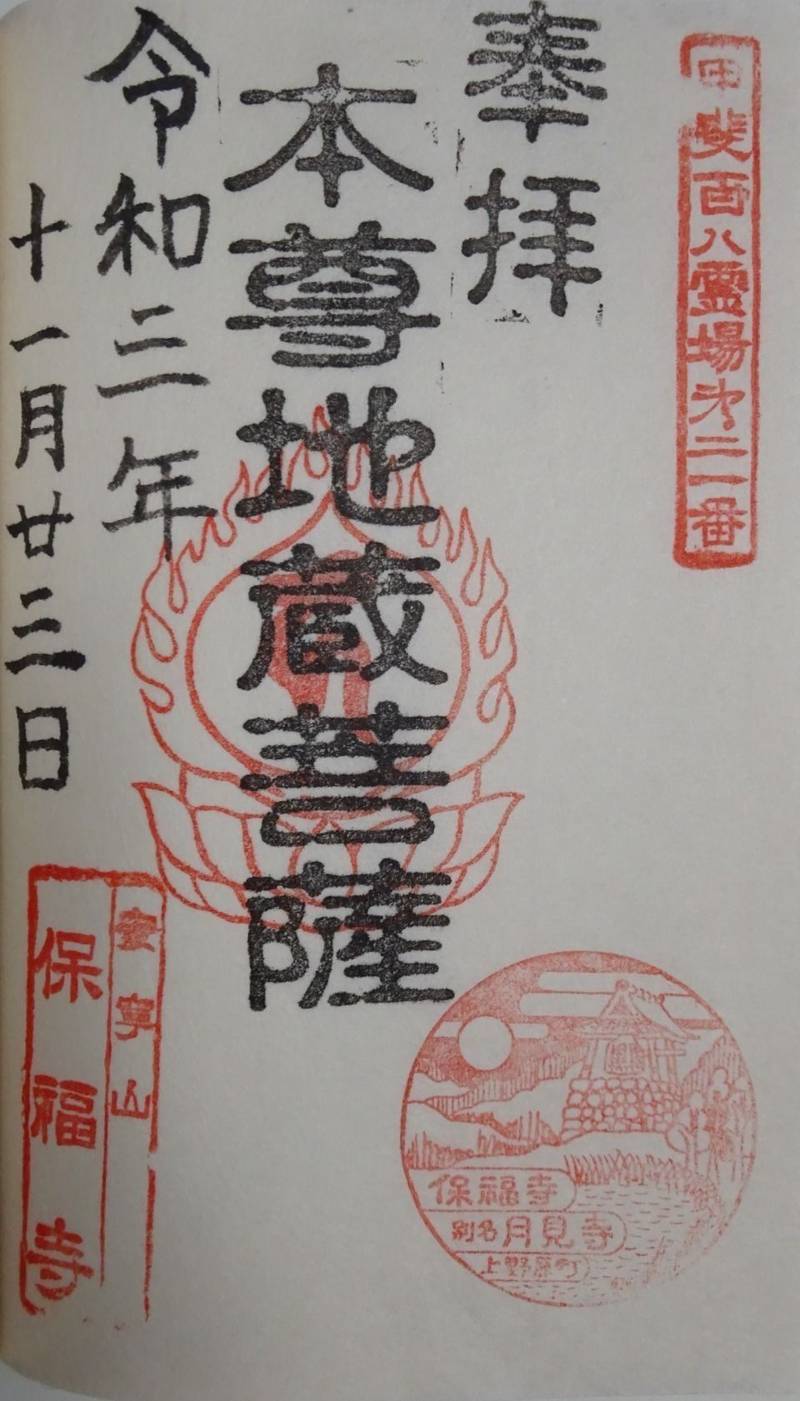 甲斐百八霊場第二一番
奉拝
本尊地蔵菩薩
令和三年
十一月廿三日
安寧山
保福寺
保福寺
別名月見寺
上野原町